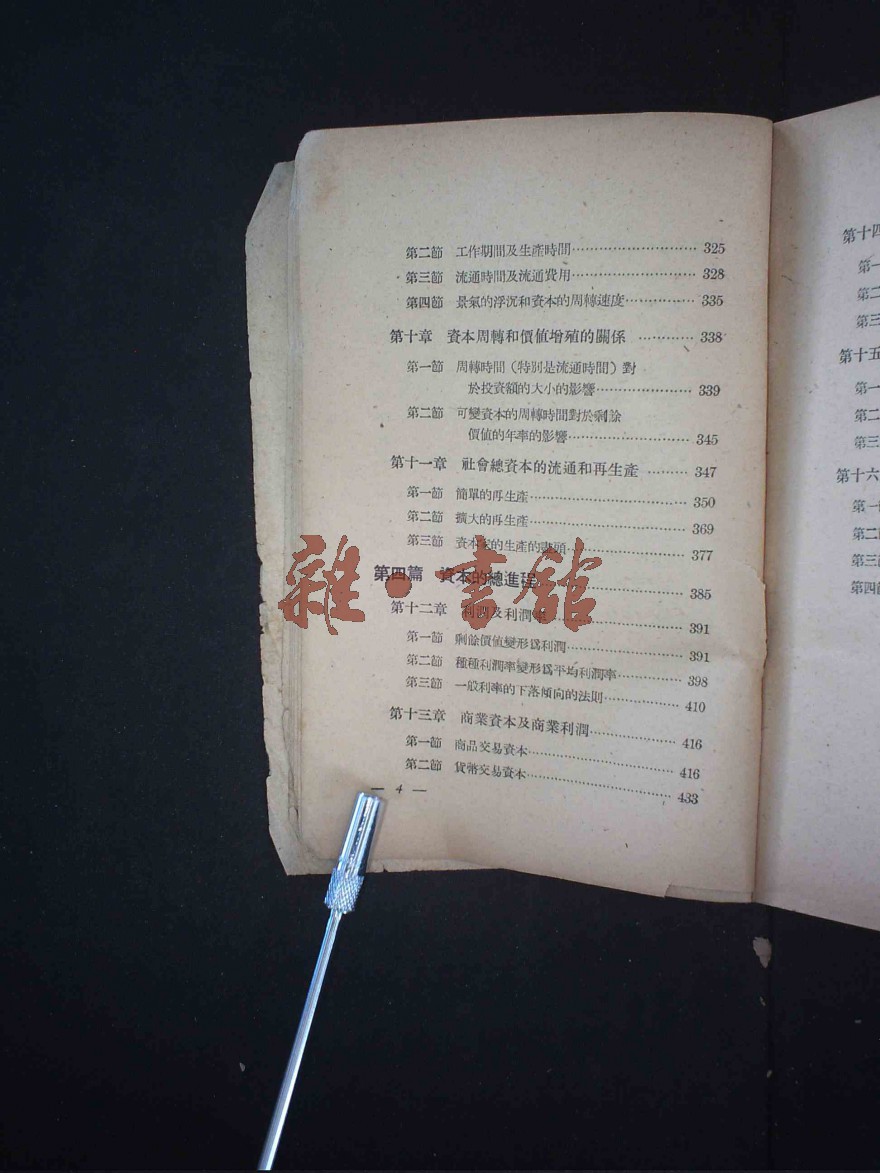 第二節　工作期間及生產時間…………………… 325
第三節　流通時間及流通費用…………………… 328
第四節　景氣的浮沉和資本的周轉速度…………… 335
第十章　資本周轉和價値增殖的關係 ………… 338
第一節　周轉時間（特別是流通時間）對
於投資額的大小的影響……………… 339
第二節　可變資本的周轉時間對於剩餘
價値的年率的影響…………………… 345
第十一章　社會總資本的流通和再生產 ……… 347
第一節　簡單的再生產………………………… 350
第二節　擴大的再生產………………………… 369
第三節　資本家的生產的盡頭………………… 377
第四篇　資本的總進程………………………… 385
第十二章　利潤及利潤率……………………… 391
第一節　剩餘價値變形爲利潤………………… 391
第二節　種種利潤率變形爲平均利潤率……… 398
第三節　一般利率的下落傾向的法則………… 410
第十三章　商業資本及商業利潤……………… 416
第一節　商品交易資本………………………… 416
第二節　貨幣交易資本………………………… 433
— 4 —
雜·書館
第十四
第一
第二
第三
第十五
第一
第二
第三
第十六
第一
第二
第三
第四